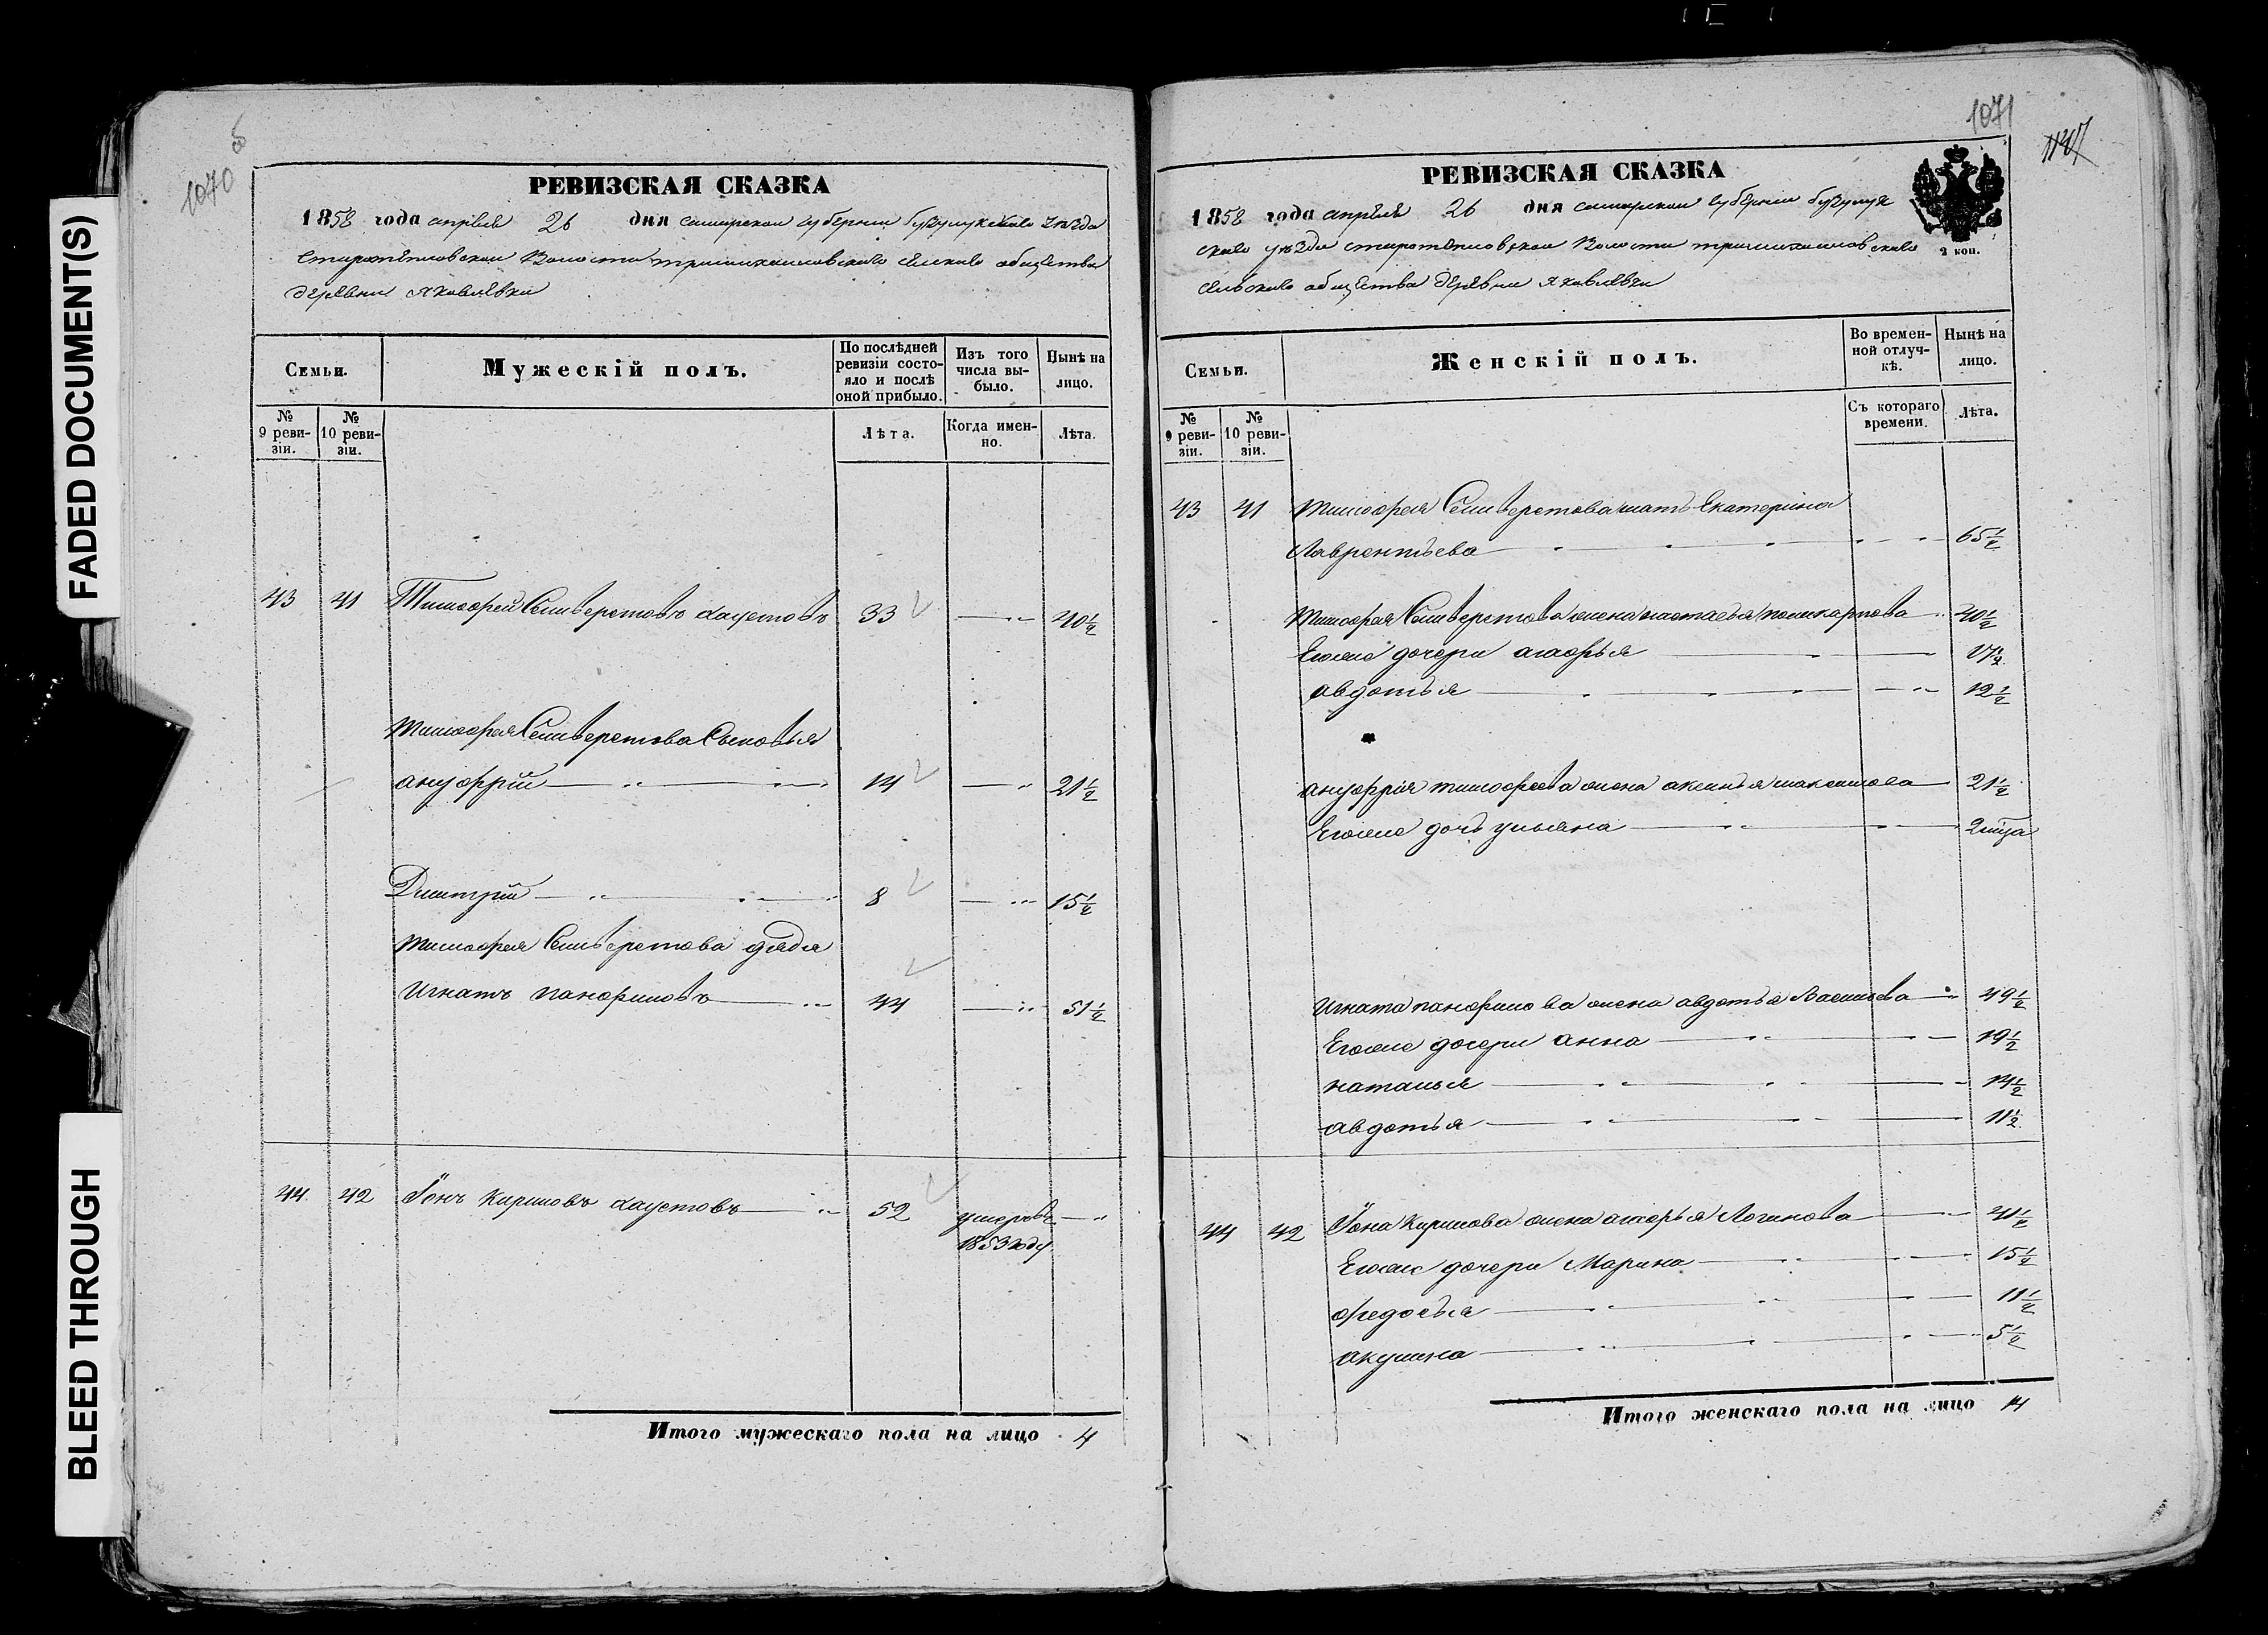 FADED DOCUMENT(S)
BLEED THROUGH
1070 об
РЕВИЗСКАЯ СКАЗКА
1858 года апреля 26 дня самарской губернии бузулукскаго уѣзда
старотепловской волости трисихайловскаго селскаго общества
деревни яковлевки
Семьи.
Мужескій полъ.
По послѣдней ревизіи состояло и послѣ оной прибыло.
Изъ того числа выбыло.
Нынѣ на лицо.
№ 9 ревизіи.
№ 10 ревизіи.
Лѣта.
Когда именно.
Лѣта.
43 41 Тимофей Селиверстовъ хаустовъ 33 40½
тимофея Селиверстова Сыновья
ануфрій 14 21½
Дмитрій 8 15½
тимофея Селиверстова дядя
игнатъ панфиловъ 44 51½
44 42 Іонъ кириловъ хаустовъ 52 умеръ въ
1853 году
Итого мужескаго пола на лицо 4
1071
1147
РЕВИЗСКАЯ СКАЗКА
2 коп.
1858 года апреля 26 дня самарской губернии бузулук
скаго уѣзда старотепловской волости
селскаго общества деревни яковлевки
Семьи.
Женскій полъ.
Во временной отлучкѣ.
Нынѣ на лицо.
№ 9 ревизіи.
№ 10 ревизіи.
Съ котораго времени.
Лѣта.
43 41 тимофея Селиверстова мать Екатерина
Лаврентьева 65½
тимофея Селиверстова жена настасья поликарпова 40½
Егоже дочери агафья 17½
авдотья 12½
ануфрія тимофеева жена аксинья максимова 21½
Егоже дочь ульяна 2 мѣца
игната панфилова жена авдотья Васильева 49½
Егоже дочери анна 19½
наталья 14½
авдотья 11½
44 42 Іона кирилова жена агафья Логинова 41½
Егоже дочери Марина 15½
федосья 11½
акулина 5½
Итого женскаго пола на лицо 14